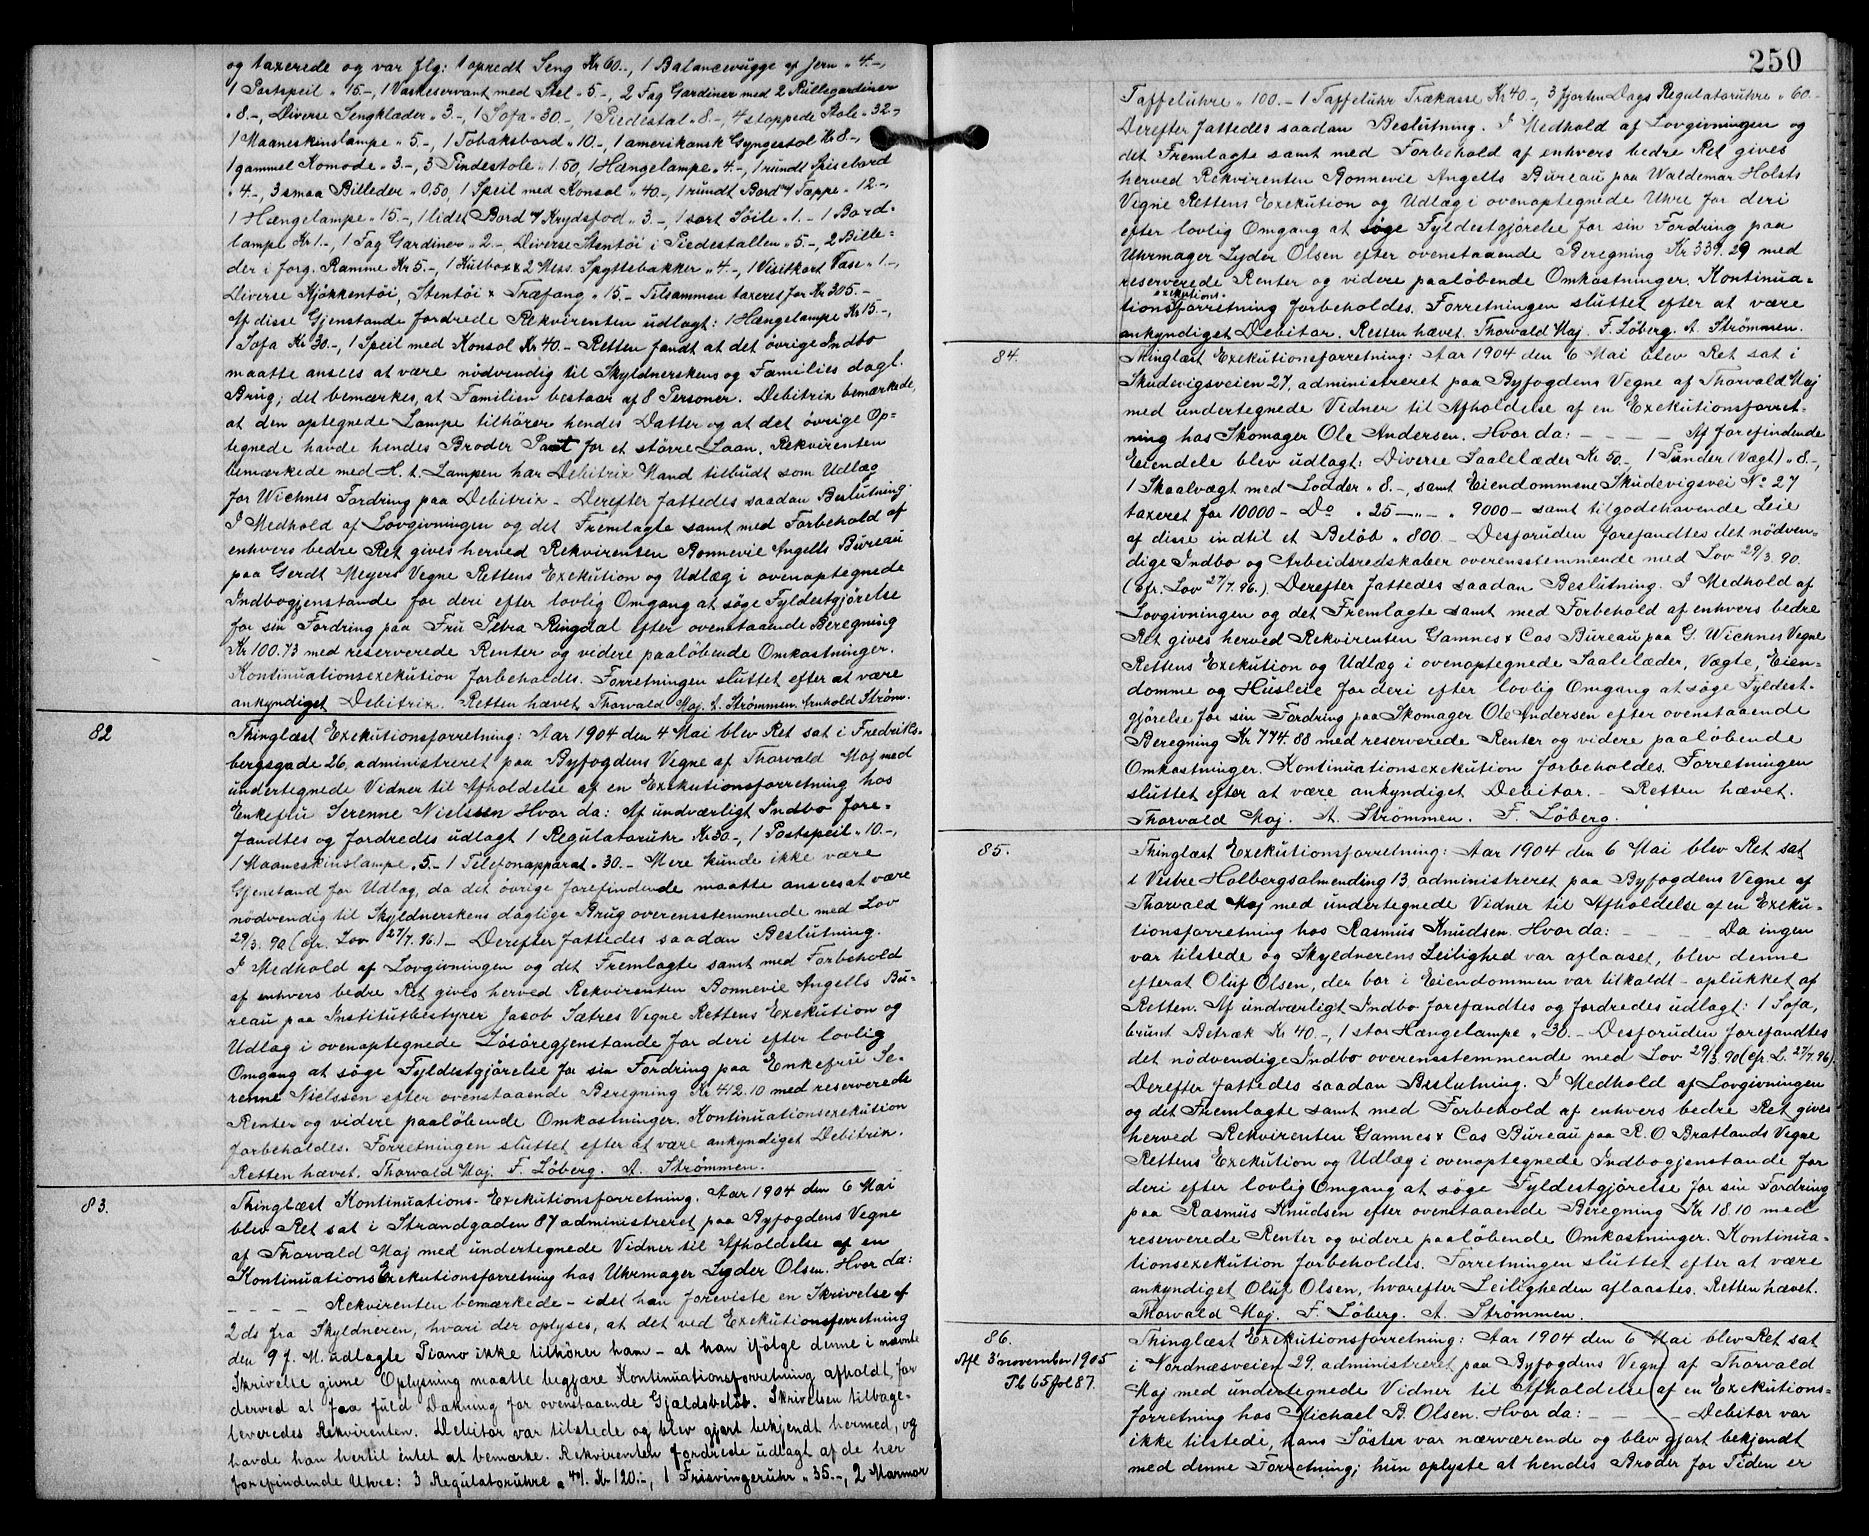 og taxerede og var flg: 1 opredt Seng Kr 60.-, 1 Balancevugge af Jern " 4.-,
1 Postspeil " 15.-, 1 Vaskeservant med Stel " 5.-, 2 Fag Gardiner med 2 Rullegardiner
" 8.-, Diverse Sengklæder " 3.-, 1 Sofa " 30.-, 1 Piedestal " 8.-, 4 stoppede Stole " 32.-
1 Maaneskinslampe " 5.-, 1 Tobaksbord " 10.-, 1 amerikansk Gyngestol Kr 8.-,
1 gammel Komode " 3.-, 3 Pindestole " 1.50, 1 Hængelampe " 4.-, 1 rundt Spisebord
" 4.-, 3 smaa Billeder " 0,50, 1 Speil med Konsol " 40.-, 1 rundt Bord m/ Tæppe " 12.-
1 Hængelampe " 15.-, 1 lidet Bord m/ Krydsfod " 3.-, 1 sort Söile " 1.- 1 Bord-
lampe Kr 1.-, 1 Fag Gardiner " 2.-, Diverse Stentöi i Piedestallen " 5.-, 2 Bille-
der i forg. Ramme Kr 5.-, 1 Kulbox & 2 Mess. Spyttebakker " 4.-, 1 Visitkort Vase " 1.-,
Diverse Kjökkentöi, Stentöi & Træfang " 15.- Tilsammen taxeret for Kr 305.-
Af disse Gjenstande fordrede Rekvirenten udlagt: 1 Hængelampe Kr 15.-,
1 Sofa Kr 30.-, 1 Speil med Konsol Kr 40.- Retten fandt at det övrige Indbo
maatte ansees at være nödvendig til Skyldnerskens og Families dagl.
Brug; det bemærkes, at Familien bestaar af 8 Personer. Debitrix bemærkede,
at den optegnede Lampe tilhörer hendes Datter og at det övrige Op-
tegnede havde hendes Broder Pant for et större Laan. Rekvirenten
bemærkede med H. t. Lampen har Debitrix Mand tilbudt som Udlæg
for Wichnes Fordring paa Debitrix - Derefter fattedes saadan Beslutning:
I Medhold af Lovgivningen og det Fremlagte samt med Forbehold af
enhvers bedre Ret gives herved Rekvirenten Bonnevie Angells Bureau
paa Gerdt Meyers Vegne Rettens Exekution og Udlæg i ovenoptegnede
Indbogjenstande for deri efter lovlig Omgang at söge Fyldestgjörelse
for sin Fordring paa Fru Petra Ringdal efter ovenstaaende Beregning
Kr 100.73 med reserverede Renter og videre paalöbende Omkostninger.
Kontinuationsexekution forbeholdes. Forretningen sluttet efter at være
ankyndiget Debitrix. Retten hævet Thorvald Maj. A. Strömmen. Arnhold Ström.
82
Thinglæst Exekutionsforretning: Aar 1904 den 4 Mai blev Ret sat i Fredriks-
bergsgade 26, administreret paa Byfogdens Vegne af Thorvald Maj med
undertegnede Vidner til Afholdelse af en Exekutionsforretning hos
Enkefru Serenne Nielssen Hvor da: Af undværligt Indbo fore-
fandtes og fordredes udlagt 1 Regulatoruhr Kr 30.-, 1 Postspeil " 10.-,
1 Maaneskinslampe " 5.- 1 Telefonapparat " 30.- Mere kunde ikke være
Gjenstand for Udlæg, da det övrige forefindende maatte ansees at være
nödvendig til Skyldnerskens daglige Brug overensstemmende med Lov
29/3. 90 (cfr. Lov 27/7. 96.) - Derefter fattedes saadan Beslutning.
I Medhold af Lovgivningen og det Fremlagte samt med Forbehold
af enhvers bedre Ret gives herved Rekvirenten Bonnevie Angells Bu-
reau paa Institutbestyrer Jacob Sætres Vegne Rettens Exekution og
Udlæg i ovenoptegnede Lösöregjenstande for deri efter lovlig
Omgang at söge Fyldestgjörelse for sin Fordring paa Enkefru Se-
renne Nielssen efter ovenstaaende Beregning Kr 412.10 med reserverede
Renter og videre paalöbende Omkostninger. Kontinuationsexekution
forbeholdes. Forretningen sluttet efter at være ankyndiget Debitrix.
Retten hævet. Thorvald Maj. F. Löberg. A. Strömmen.
83.
Thinglæst Kontinuations-Exekutionsforretning. Aar 1904 den 6 Mai
blev Ret sat i Strandgaden 87 administreret paa Byfogdens Vegne
af Thorvald Maj med undertegnede Vidner til Afholdelse af en
KontinuationsExekutionsforretning hos Uhrmager Lyder Olsen. Hvor da:
- - - - Rekvirenten bemærkede - idet han foreviste en Skrivelse af
2 ds fra Skyldneren, hvori der oplyses, at det ved Exekutionsforretning
den 9 f. M. udlagte Piano ikke tilhörer ham - at han ifölge denne i nævnte
Skrivelse givne Oplysning maatte begjære Kontinuationsforretning afholdt, for
derved at faa fuld Dækning for ovenstaaende Gjældsbelöb. Skrivelsen tilbage-
leveredes Rekvirenten. Debitor var tilstede og blev gjort bekjendt hermed, og
havde han hertil intet at bemærke. Rekvirenten fordrede udlagt af de her
forefindende Uhre: 3 Regulatoruhre a 40/. Kr 120.-, 1 Frisvingeruhr " 35.-, 2 Marmor
250
Taffeluhre " 100.- 1 Taffeluhr Trækasse Kr 40.-, 3 fjorten Dags Regulatoruhre " 60.-
Derefter fattedes saadan Beslutning. I Medhold af Lovgivningen og
det Fremlagte samt med Forbehold af enhvers bedre Ret gives
herved Rekvirenten Bonnevie Angells Bureau paa Waldemar Holsts
Vegne Rettens Exekution og Udlæg i ovenoptegnede Uhre for deri
efter lovlig Omgang at söge Fyldestgjörelse for sin Fordring paa
Uhrmager Lyder Olsen efter ovenstaaende Beregning Kr 339.29 med
reserverede Renter og videre paalöbende Omkostninger. Kontinua-
exekutions-
tionsforretning forbeholdes. Forretningen sluttet efter at være
ankyndiget Debitor. Retten hævet. Thorvald Maj. F. Löberg. A. Strömmen.
84.
Thinglæst Exekutionsforretning: Aar 1904 den 6 Mai blev Ret sat i
Skudevigsveien 27, administreret paa Byfogdens Vegne af Thorvald Maj
med undertegnede Vidner til Afholdelse af en Exekutionsforret-
ning hos Skomager Ole Andersen. Hvor da: - - - - Af forefindende
Eiendele blev udlagt: Diverse Saalelæder Kr 50.- 1 Punder (Vægt) " 8.-,
1 Skaalvægt med Lodder " 8.-, samt Eiendommene Skudevigsvei No 27
taxeret for 10000 - Do " 25 - " - " 9000 - samt tilgodehavende Leie
af disse indtil et Belöb " 800.- Desforuden forefandtes det nödven-
dige Indbo og Arbeidsredskaber overensstemmende med Lov 29/3. 90.
(cfr. Lov 27/7. 96.) Derefter fattedes saadan Beslutning. I Medhold af
Lovgivningen og det Fremlagte samt med Forbehold af enhvers bedre
Ret gives herved Rekvirenten Gamnes & Cos Bureau paa G. Wichnes Vegne
Rettens Exekution og Udlæg i ovenoptegnede Saalelæder, Vægte, Eien-
domme og Husleie for deri efter lovlig Omgang at söge Fyldest-
gjörelse for sin Fordring paa Skomager Ole Andersen efter ovenstaaende
Beregning Kr 774.88 med reserverede Renter og videre paalöbende
Omkostninger. Kontinuationsexekution forbeholdes. Forretningen
sluttet efter at være ankyndiget Debitor. - Retten hævet.
Thorvald Maj. A. Strömmen. F. Löberg.
85.
Thinglæst Exekutionsforretning: Aar 1904 den 6 Mai blev Ret sat
i Vestre Holbergsalmending 13, administreret paa Byfogdens Vegne af
Thorvald Maj med undertegnede Vidner til Afholdelse af en Exeku-
tionsforretning hos Rasmus Knudsen. Hvor da: - - - - Da ingen
var tilstede og Skyldnerens Leilighed var aflaaset, blev denne
efterat Oluf Olsen, der bor i Eiendommen var tilkaldt - oplukket af
Retten. Af undværligt Indbo forefandtes og fordredes udlagt: 1 Sofa,
brunt Betræk Kr 40.-, 1 stor Hængelampe " 30.- Desforuden forefandtes
det nödvendige Indbo overensstemmende med Lov 29/3. 90 (cfr. L. 27/7. 96).
Derefter fattedes saadan Beslutning. I Medhold af Lovgivningen
og det Fremlagte samt med Forbehold af enhvers bedre Ret gives
herved Rekvirenten Gamnes & Cos Bureau paa R. O Bratlands Vegne
Rettens Exekution og Udlæg i ovenoptegnede Indbogjenstande for
deri efter lovlig Omgang at söge Fyldestgjörelse for sin Fordring
paa Rasmus Knudsen efter ovenstaaende Beregning Kr 18.10 med
reserverede Renter og videre paalöbende Omkostninger. Kontinua-
tionsexekution forbeholdes. Forretningen sluttet efter at være
ankyndiget Oluf Olsen, hvorefter Leiligheden aflaastes. Retten hævet.
Thorvald Maj. F. Löberg. A. Strömmen.
86.
Afl 3' november 1905
Pb 65 fol 87.
Thinglæst Exekutionsforretning: Aar 1904 den 6 Mai blev Ret sat
i Nordnæsveien 29, administreret paa Byfogdens Vegne af Thorvald
Maj med undertegnede Vidner til Afholdelse af en Exekutions-
forretning hos Michael B. Olsen. Hvor da: - - - - Debitor var
ikke tilstede, hans Söster var nærværende og blev gjort bekjendt
med denne Forretning; hun oplyste at hendes Broder for Tiden er